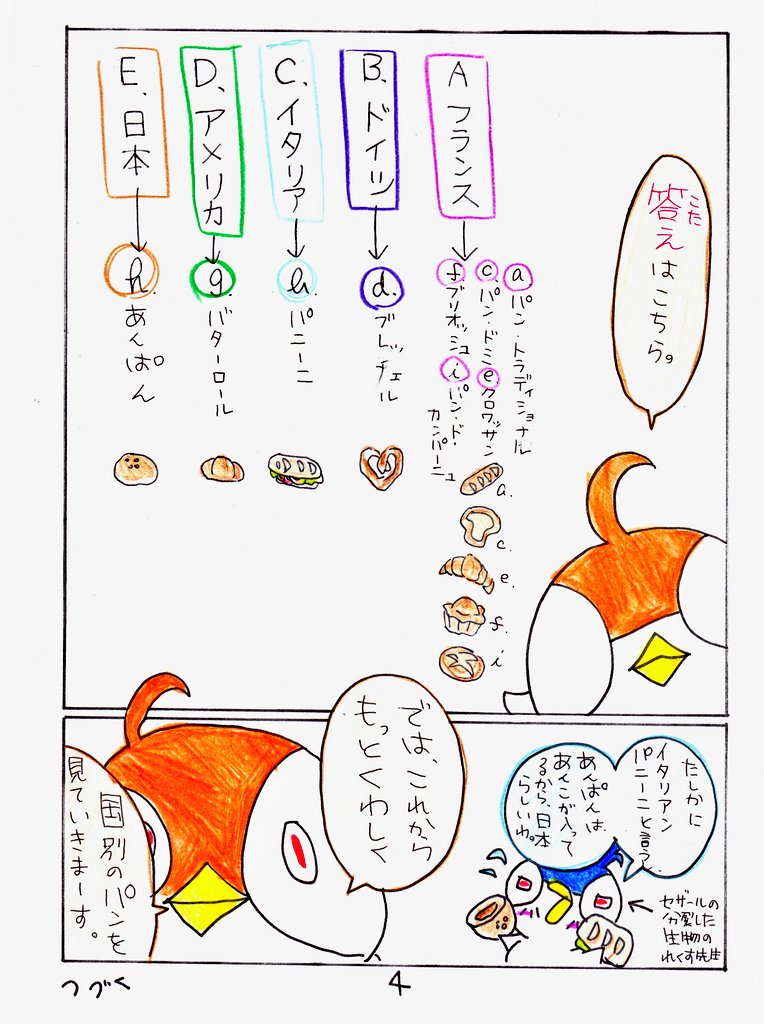 答えはこちら。
こた
A フランス
a パン・トラディショナル
c パン・ドミ
e クロワッサン
f ブリオッシュ
i パン・ド
カンパーニュ
a.
c.
e.
f.
i
B. ドイツ
d. ブレッチェル
C. イタリア
h. パニーニ
D. アメリカ
g. バターロール
E. 日本
h. あんぱん
たしかに
イタリアン
パニーニと言うし、
あんぱんは、
あんこが入って
るから、日本
らしいわ。
セザールの
分裂した
生物の
れくす先生
では、これから
もっとくわしく
国別のパンを
見ていきまーす。
つづく
4